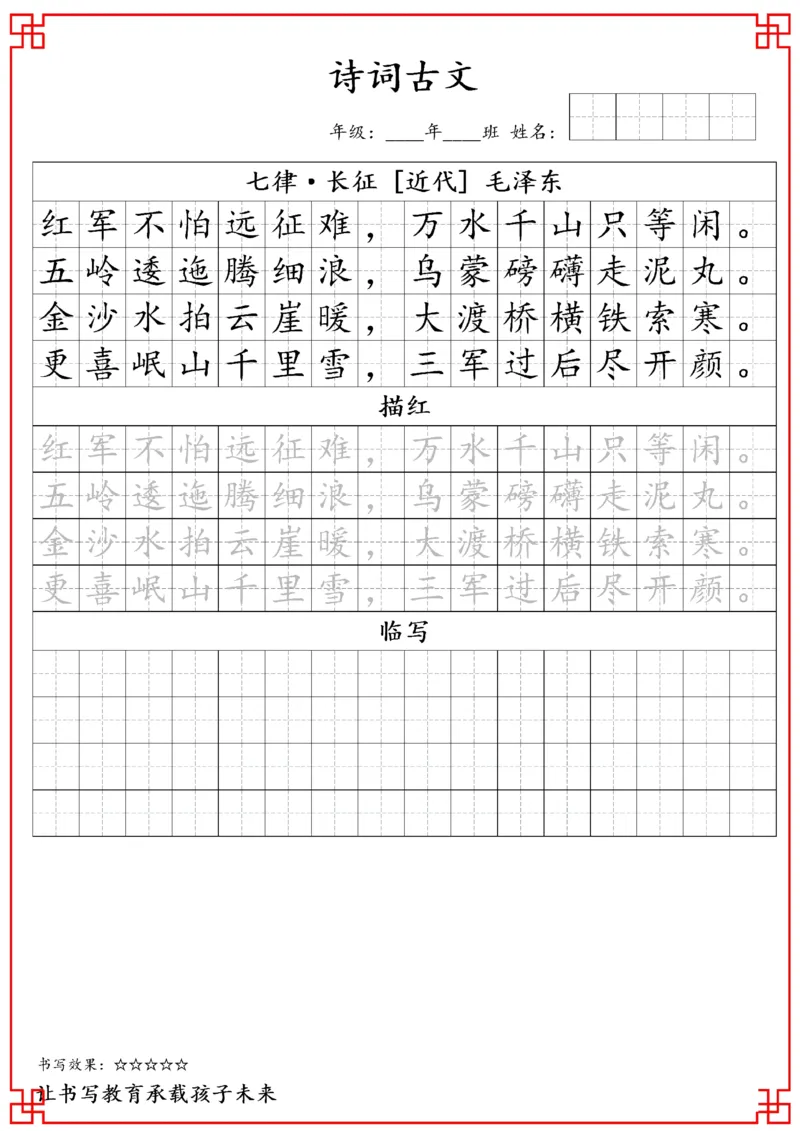 诗词古文
年级：____年____班 姓名：
七律·长征 [近代] 毛泽东
红军不怕远征难，万水千山只等闲。
五岭逶迤腾细浪，乌蒙磅礴走泥丸。
金沙水拍云崖暖，大渡桥横铁索寒。
更喜岷山千里雪，三军过后尽开颜。
描红
红军不怕远征难，万水千山只等闲。
五岭逶迤腾细浪，乌蒙磅礴走泥丸。
金沙水拍云崖暖，大渡桥横铁索寒。
更喜岷山千里雪，三军过后尽开颜。
临写
书写效果：☆☆☆☆☆
让书写教育承载孩子未来